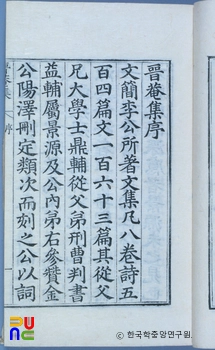 晉菴集序
文簡李公所著文集凡八卷詩五
百四篇文一百六十三篇其從父
兄大學士鼎輔從父弟刑曹判書
益輔屬景源及公內弟右參贊金
公陽澤刪定類次而刻之公以詞
晉菴集
序
한국학중앙연구원